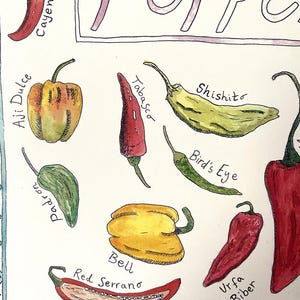 Cayen
Aji Dulce
Tabasco
Shishito
Padron
Bird's Eye
Bell
Red Serrano
Urfa
Biber